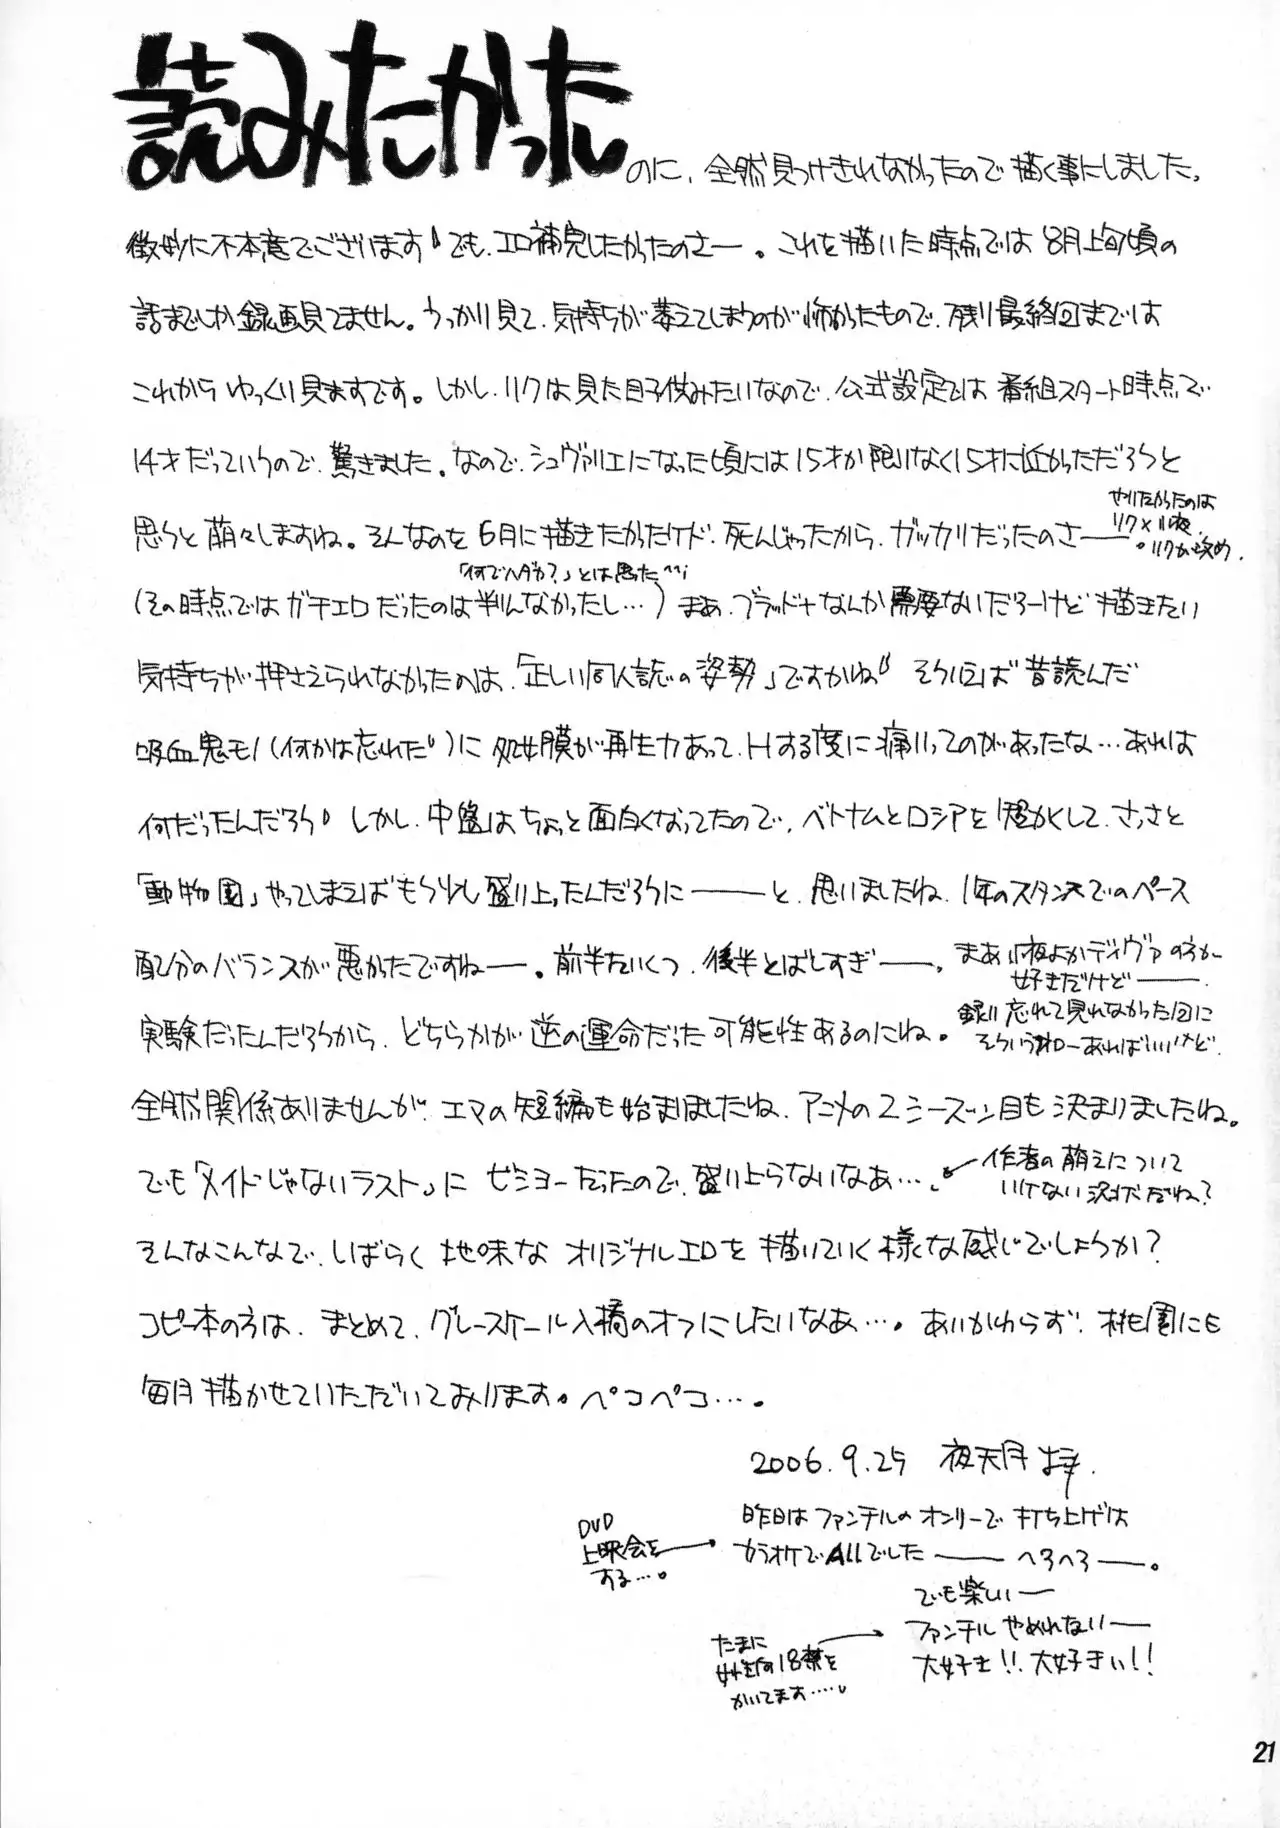 読みたかった
のに、全然見つけきれなかったので描く事にしました。
微妙に不本意でございます でも、エロ補完したかったのさー。これを描いた時点では8月上旬頃の
話までしか録画見てません。うっかり見て、気持ちが萎えてしまうのが怖かったもので、残り最終回までは
これからゆっくり見ますです。しかし、リクは見た目子供みたいなので、公式設定では番組スタート時点で
14才だっていうので、驚きました。なので、シュヴァリエになった頃には15才か限りなく15才に近かっただろうと
思うと萌々しますね。そんなのを6月に描きたかったケド、死んじゃったから、ガッカリだったのさー。
やりたかったのは
リク×小夜。
リクが攻め。
「何でハダカ?」とは思った^^;
(その時点ではガチエロだったのは判んなかったし…)まぁ、ブラッド+なんか需要ないだろーけど描きたい
気持ちが押さえられなかったのは、「正しい同人誌の姿勢」ですかね そういえば昔読んだ
吸血鬼モノ(何かは忘れた)に処女膜が再生力あって、Hする度に痛いってのがあったな…あれは
何だったんだろう しかし、中盤はちょっと面白くなってたので、ベトナムとロシアを短かくして、さっさと
「動物園」やってしまえばもう少し盛り上ったんだろうにーーーと、思いましたね、1年のスタンスでのペース
配分のバランスが悪かったですねー。前半たいくつ、後半とばしすぎー。
まあ小夜よかディヴァの方が
好きだけどー。
実験だったんだろうから、どちらかが逆の運命だった可能性あるのにね。
録り忘れて見れなかった回に
そういうネローあればいいけど。
全然関係ありませんが、エマの短編も始まりましたね、アニメの2シーズン目も決まりましたね。
でも「メイドじゃないラスト」にビミョーだったので、盛り上らないなあ…。
作者の萌えについて
いけない状状だね?
そんなこんなで、しばらく地味なオリジナルエロを描いていく様な感じでしょうか?
コピー本の方は、まとめて、グレースケール入稿のオフにしたいなあ…。あいかわらず、桃園にも
毎月描かせていただいております。ペコペコ…。
2006.9.25 夜天月 拝.
昨日はファンテルのオンリーで打ち上げは
カラオケでAllでしたーへろへろー。
DVD
上映会を
する…。
でも楽しいー
ファンテルやめれないー
大好き!! 大好きぃ!!
たまに
女性向の18禁を
かいてます……
21